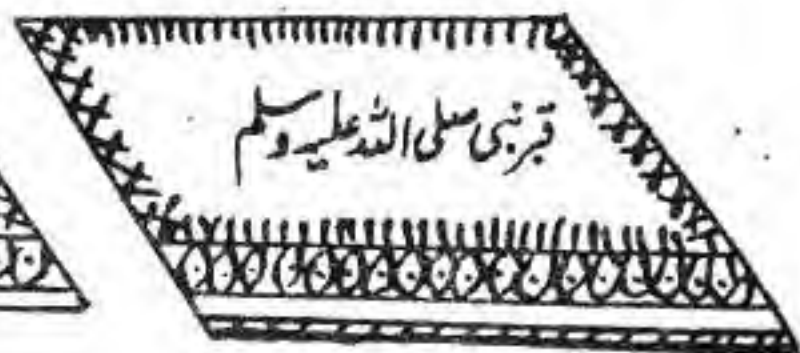 قبر نبی صلی اللہ علیہ وسلم